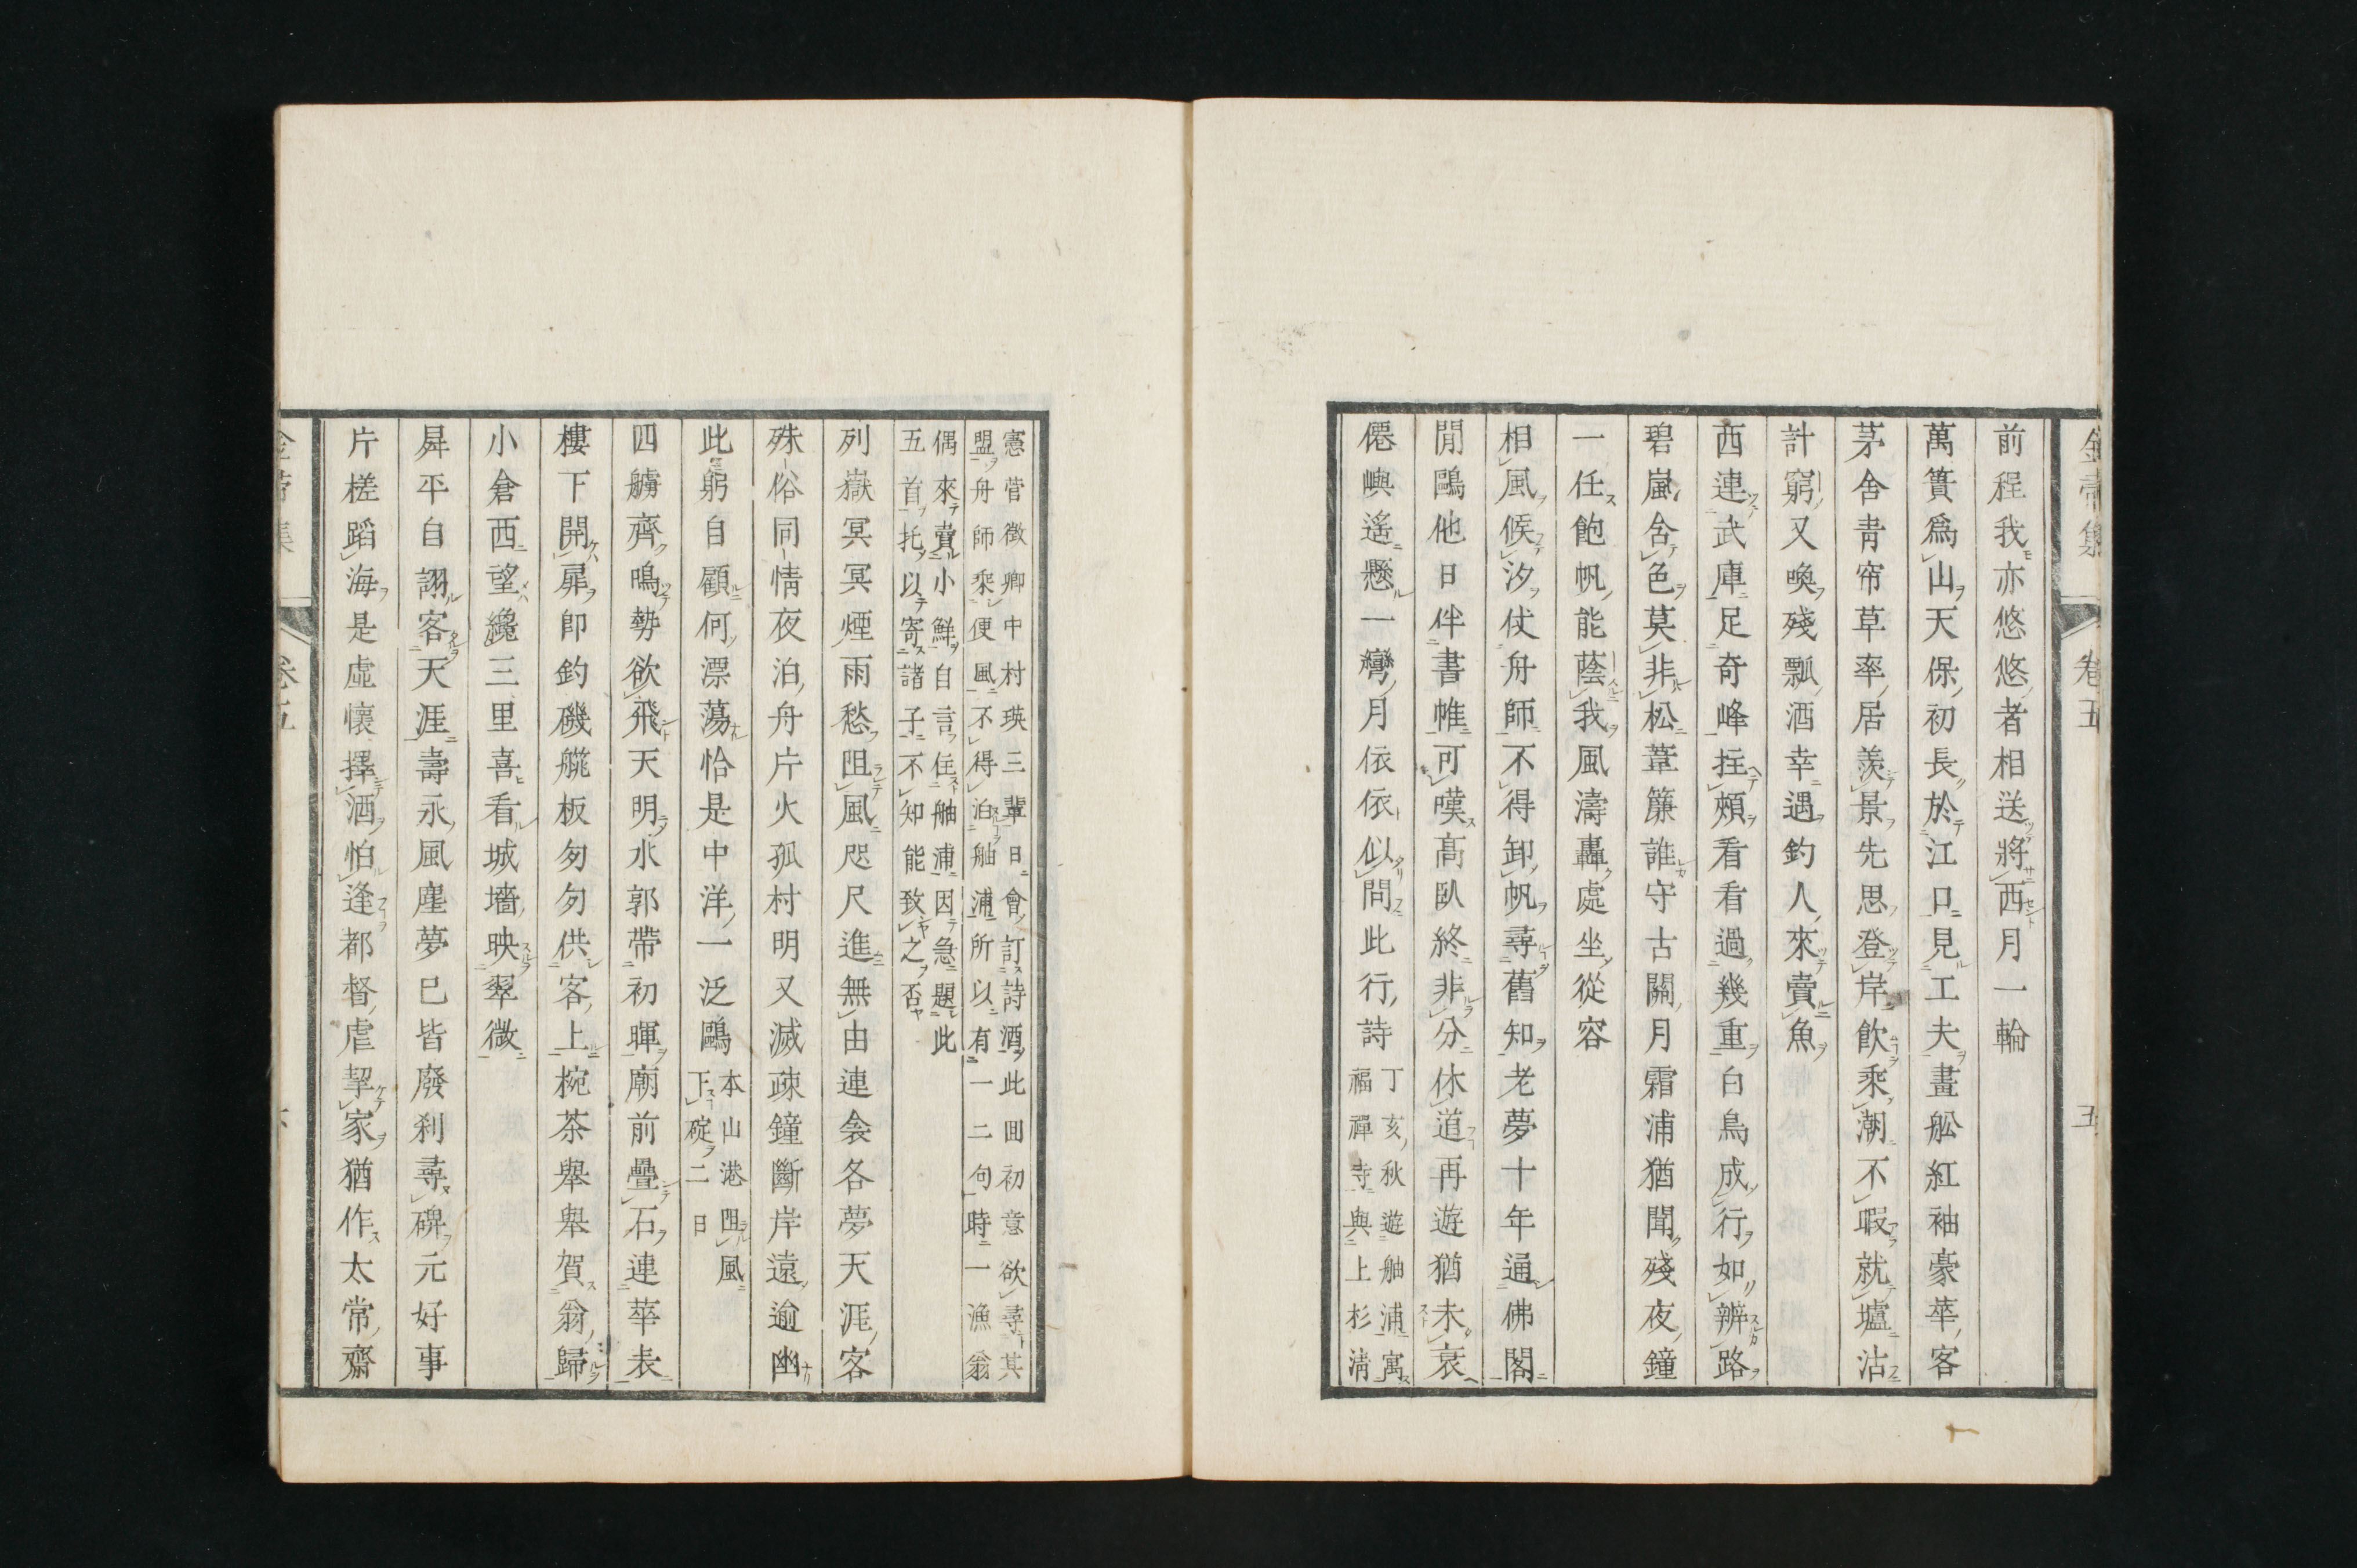 卷五
五
前程我亦悠悠者相送將西月一輪
萬簣爲山天保初長於江口見工夫畫舩紅袖豪華客
茅舍靑帘草率居羨景先思登岸飮乘潮不暇就壚沽
計窮又喚殘瓢酒幸遇釣人來賣魚
西連武庫足奇峰拄頰看看過幾重白鳥成行如辨路
碧嵐含色莫非松葦簾誰守古關月霜浦猶聞殘夜鐘
一任飽帆能蔭我風濤轟處坐從容
相風候汐仗舟師不得卸帆尋舊知老夢十年通佛閣
閒鷗他日伴書帷可嘆高臥終非分休道再遊猶未衰
僊嶼遙懸一彎月依依似問此行詩
丁亥秋遊舳浦寓
福禪寺與上杉淸
憲菅徵卿中村瑛三輩日會訂詩酒此囬初意欲尋其
盟舟師乘便風不得泊舳浦所以有一二句時一漁翁
偶來賣小鮮自言住舳浦因急題此
五首托以寄諸子不知能致之否
列嶽冥冥煙雨愁阻風咫尺進無由連衾各夢天涯客
殊俗同情夜泊舟片火孤村明又滅疎鐘斷岸遠逾幽
此躬自顧何漂蕩恰是中洋一泛鷗
本山港阻風
下碇二日
四艣齊鳴勢欲飛天明水郭帶初暉廟前疊石連華表
樓下開扉卽釣磯艤板匆匆供客上椀茶擧擧賀翁歸
小倉西望纔三里喜看城墻映翠微
曻平自詡客天涯壽永風塵夢已皆廢刹尋碑元好事
片槎蹈海是虛懷擇酒怕逢都督虐挈家猶作太常齋
卷五